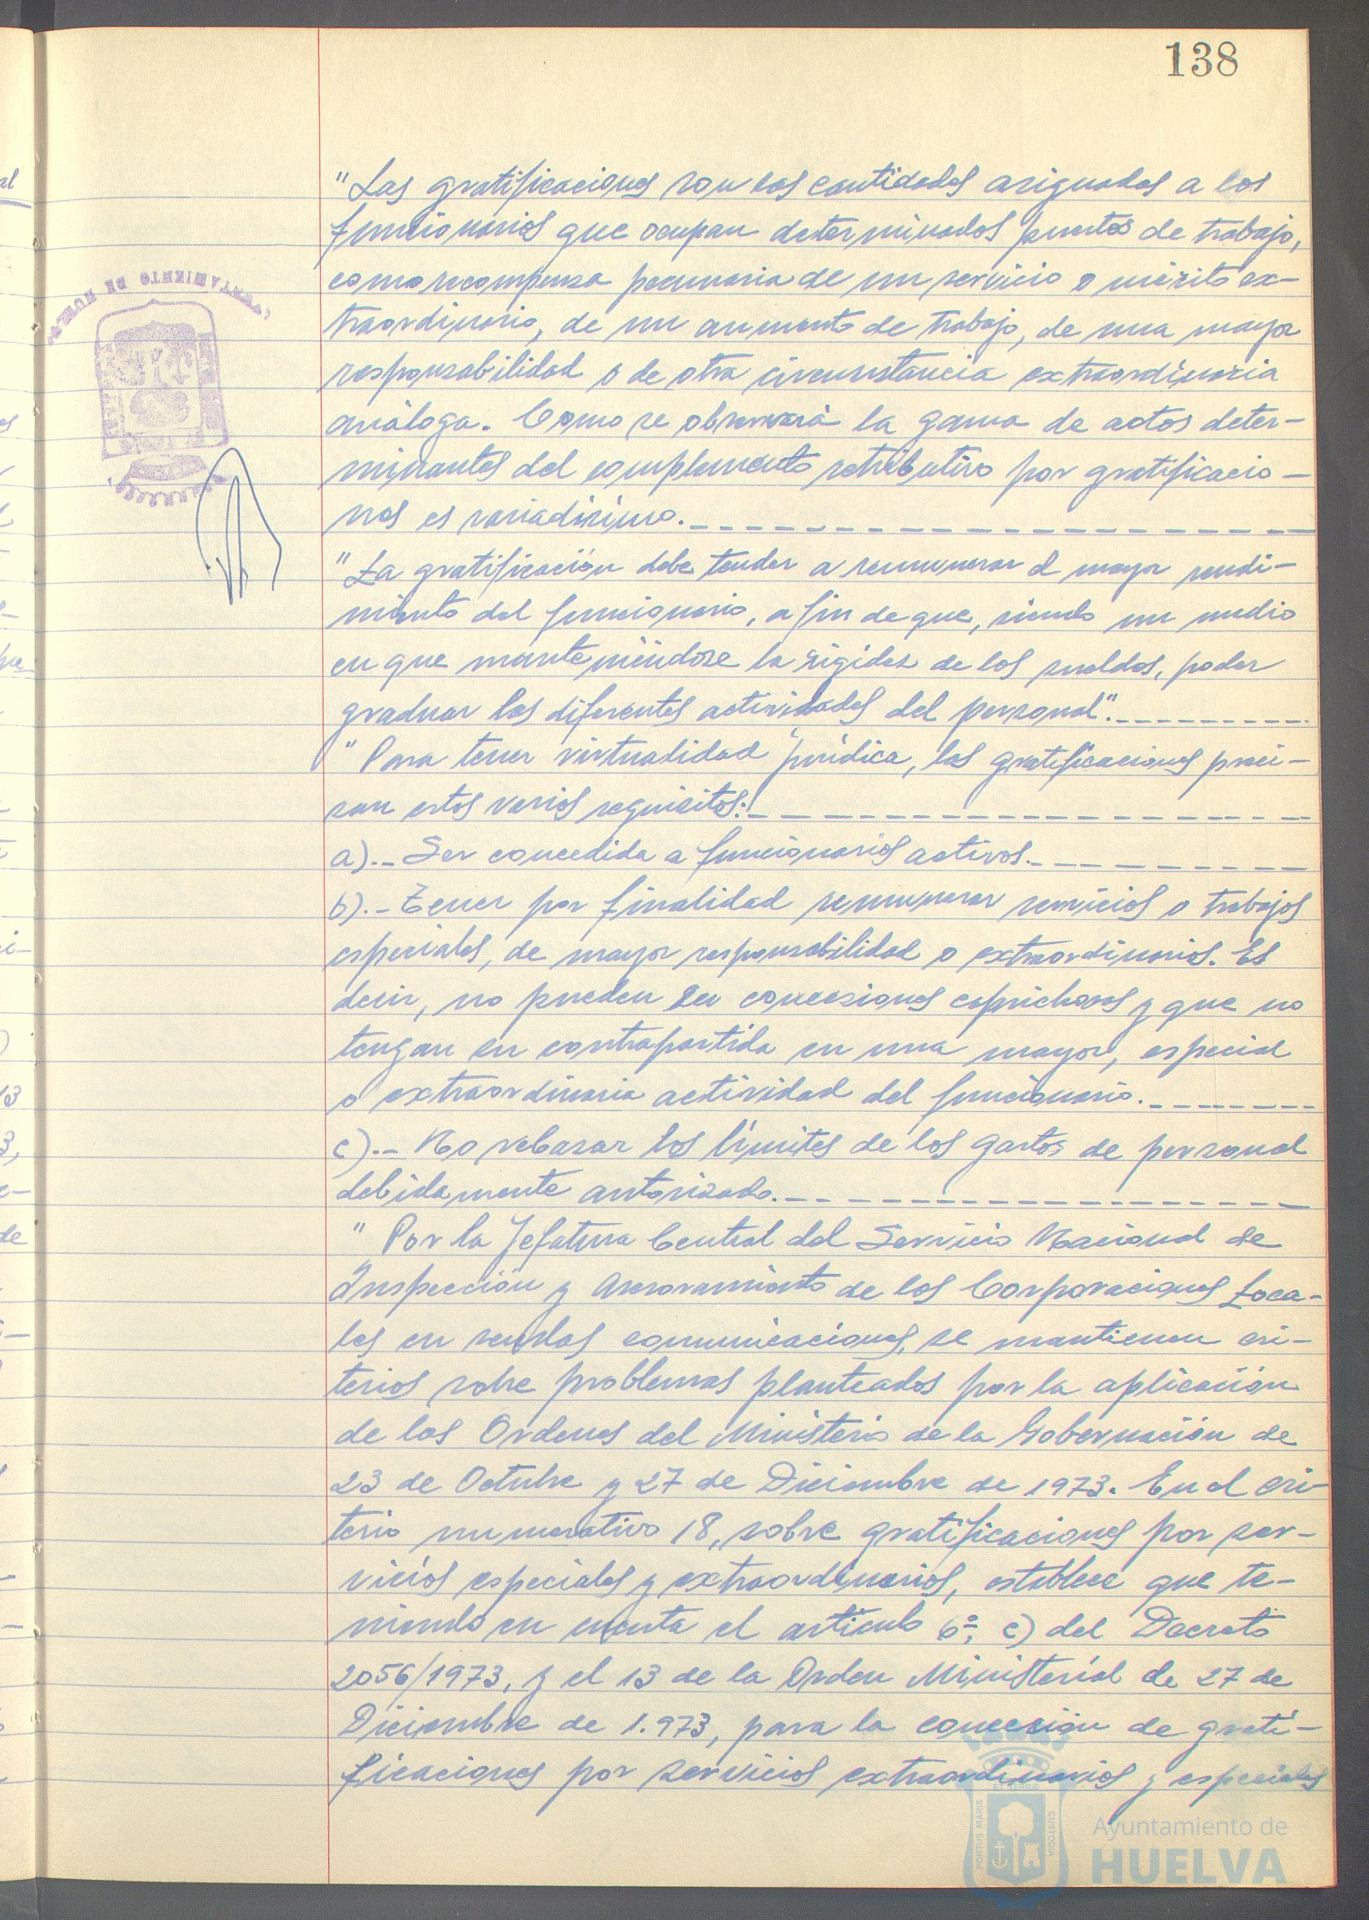 138
"Las gratificaciones son las cantidades asignadas a los
funcionarios que ocupan determinados puestos de trabajo,
como recompensa pecuniaria de un servicio o mérito ex-
traordinario, de un aumento de trabajo, de una mayor
responsabilidad o de otra circunstancia extraordinaria
análoga. Como se observará la gama de actos deter-
minantes del complemento retributivo por gratificacio-
nes es variadísimo.
"La gratificación debe tender a remunerar el mayor rendi-
miento del funcionario, a fin de que, siendo un medio
en que manteniéndose la rigidez de los sueldos, poder
graduar las diferentes actividades del personal".
"Para tener virtualidad jurídica, las gratificaciones preci-
san estos varios requisitos:
a).- Ser concedida a funcionarios activos.
b).- Tener por finalidad remunerar servicios o trabajos
especiales, de mayor responsabilidad o extraordinarios. Es
decir, no pueden ser concesiones caprichosas y que no
tengan su contrapartida en una mayor, especial
o extraordinaria actividad del funcionario.
c).- No rebasar los límites de los gastos de personal
debidamente autorizado.
"Por la Jefatura Central del Servicio Nacional de
Inspección y Asesoramiento de las Corporaciones Loca-
les en sendas comunicaciones, se mantienen cri-
terios sobre problemas planteados por la aplicación
de las Ordenes del Ministerio de la Gobernación de
23 de Octubre y 27 de Diciembre de 1973. En el cri-
terio numerativo 18, sobre gratificaciones por ser-
vicios especiales y extraordinarios, establece que te-
niendo en cuenta el artículo 6º, c) del Decreto
2056/1973, y el 13 de la Orden Ministerial de 27 de
Diciembre de 1.973, para la concesión de grati-
ficaciones por servicios extraordinarios y especiales
AYUNTAMIENTO DE HUELVA
PORTUS MARIS
CUSTODIA
Ayuntamiento de
HUELVA